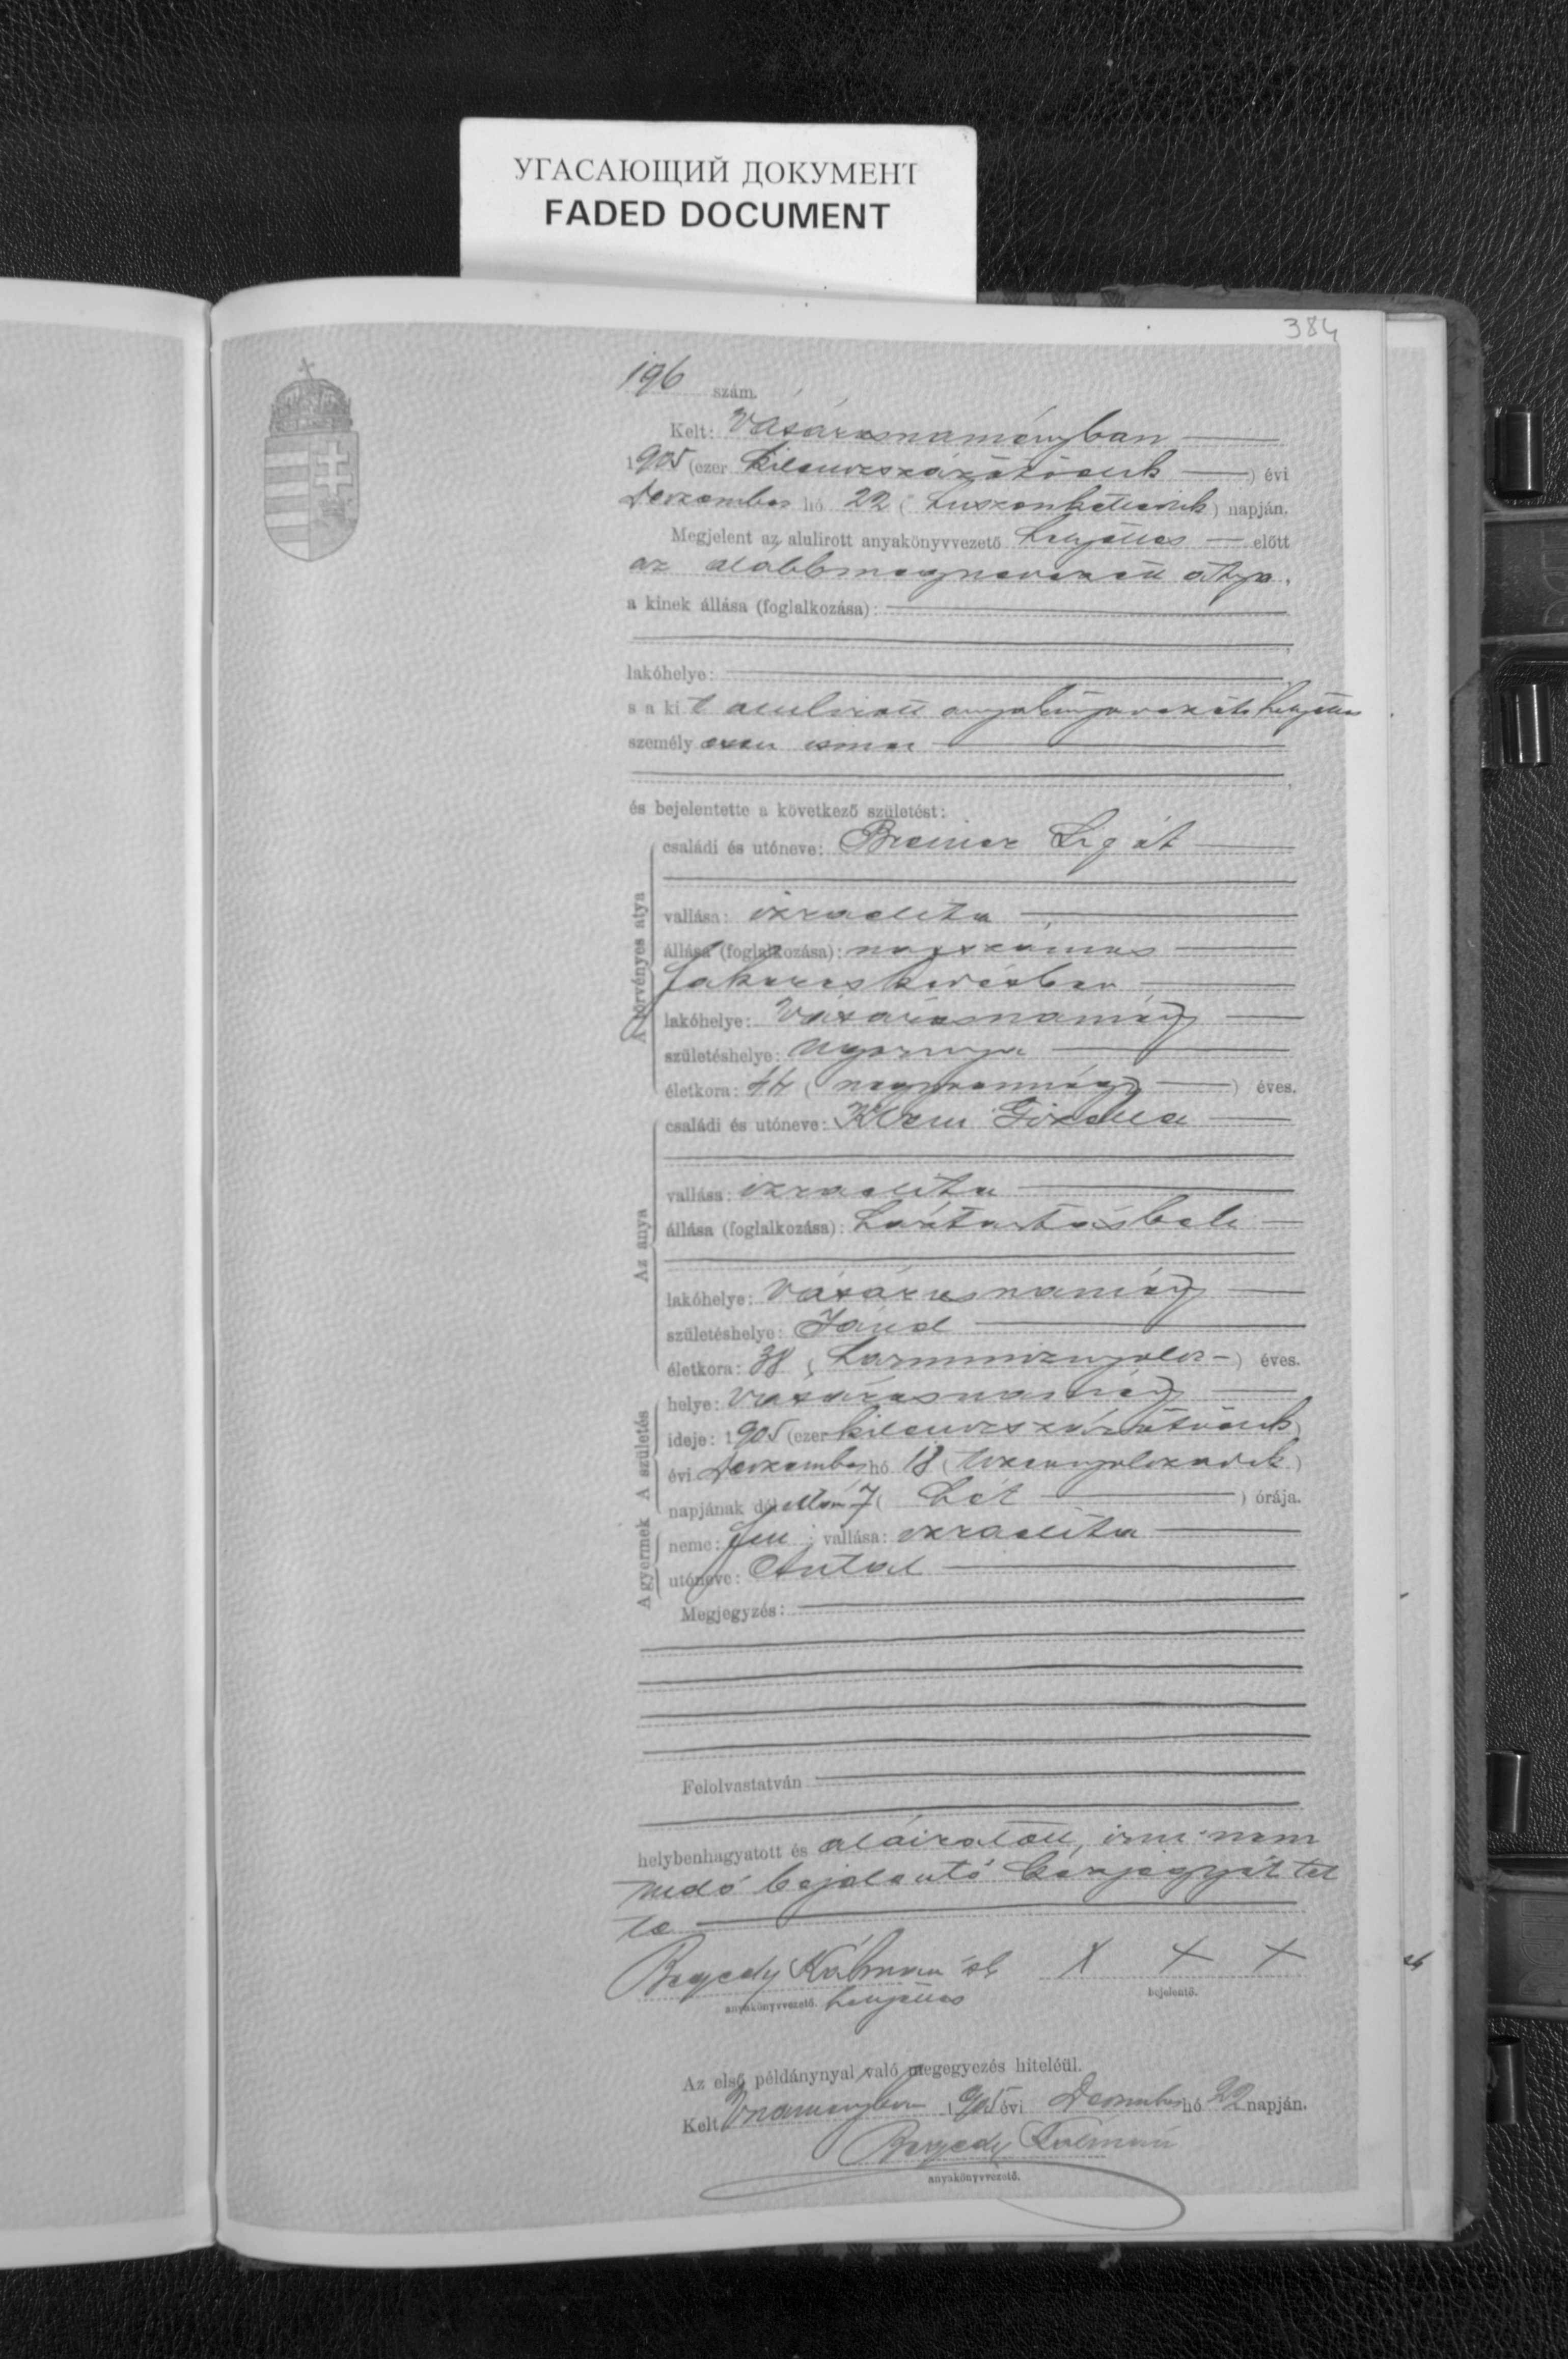 УГАСАЮЩИЙ ДОКУМЕНТ
FADED DOCUMENT
384
196 szám.
Kelt: Vásárosnaményban
1905 (ezer kilenczszázötödik) évi
Deczember hó 22 (huszonkettedik) napján.
Megjelent az alulirott anyakönyvvezető helyettes előtt
az alábbmegnevezett atya,
a kinek állása (foglalkozása):
lakóhelye:
s a kit alulirott anyakönyvvezető helyettes
személyesen ismer
és bejelentette a következő születést:
A törvényes atya
családi és utóneve: Breiner Ligát
vallása: izraelita
állása (foglalkozása): napszámos
fakereskedésben
lakóhelye: Vásárosnamény
születéshelye:
életkora: 44 (negyvennégy) éves.
Az anya
családi és utóneve: Klein Gizella
vallása: izraelita
állása (foglalkozása): háztartásbeli
lakóhelye: Vásárosnamény
születéshelye: Jánd
életkora: 38 (harmincznyolcz) éves.
A születés
helye: Vásárosnamény
ideje: 1905 (ezer kilenczszázötödik)
évi Deczember hó 18 (tizennyolczadik)
napjának délelőtti 7 (hét) órája.
A gyermek
neme: fiu; vallása: izraelita
utóneve: Antal
Megjegyzés:
Felolvastatván
helybenhagyatott és aláiratott, irni nem
tudó bejelentő kézjegyét tet
te
Begedy Kálmán x x x
anyakönyvvezető. helyettes bejelentő.
Az első példánynyal való megegyezés hiteléül.
Kelt Vnaményban 1905 évi Deczember hó 22 napján.
Begedy Kálmán
anyakönyvvezető.